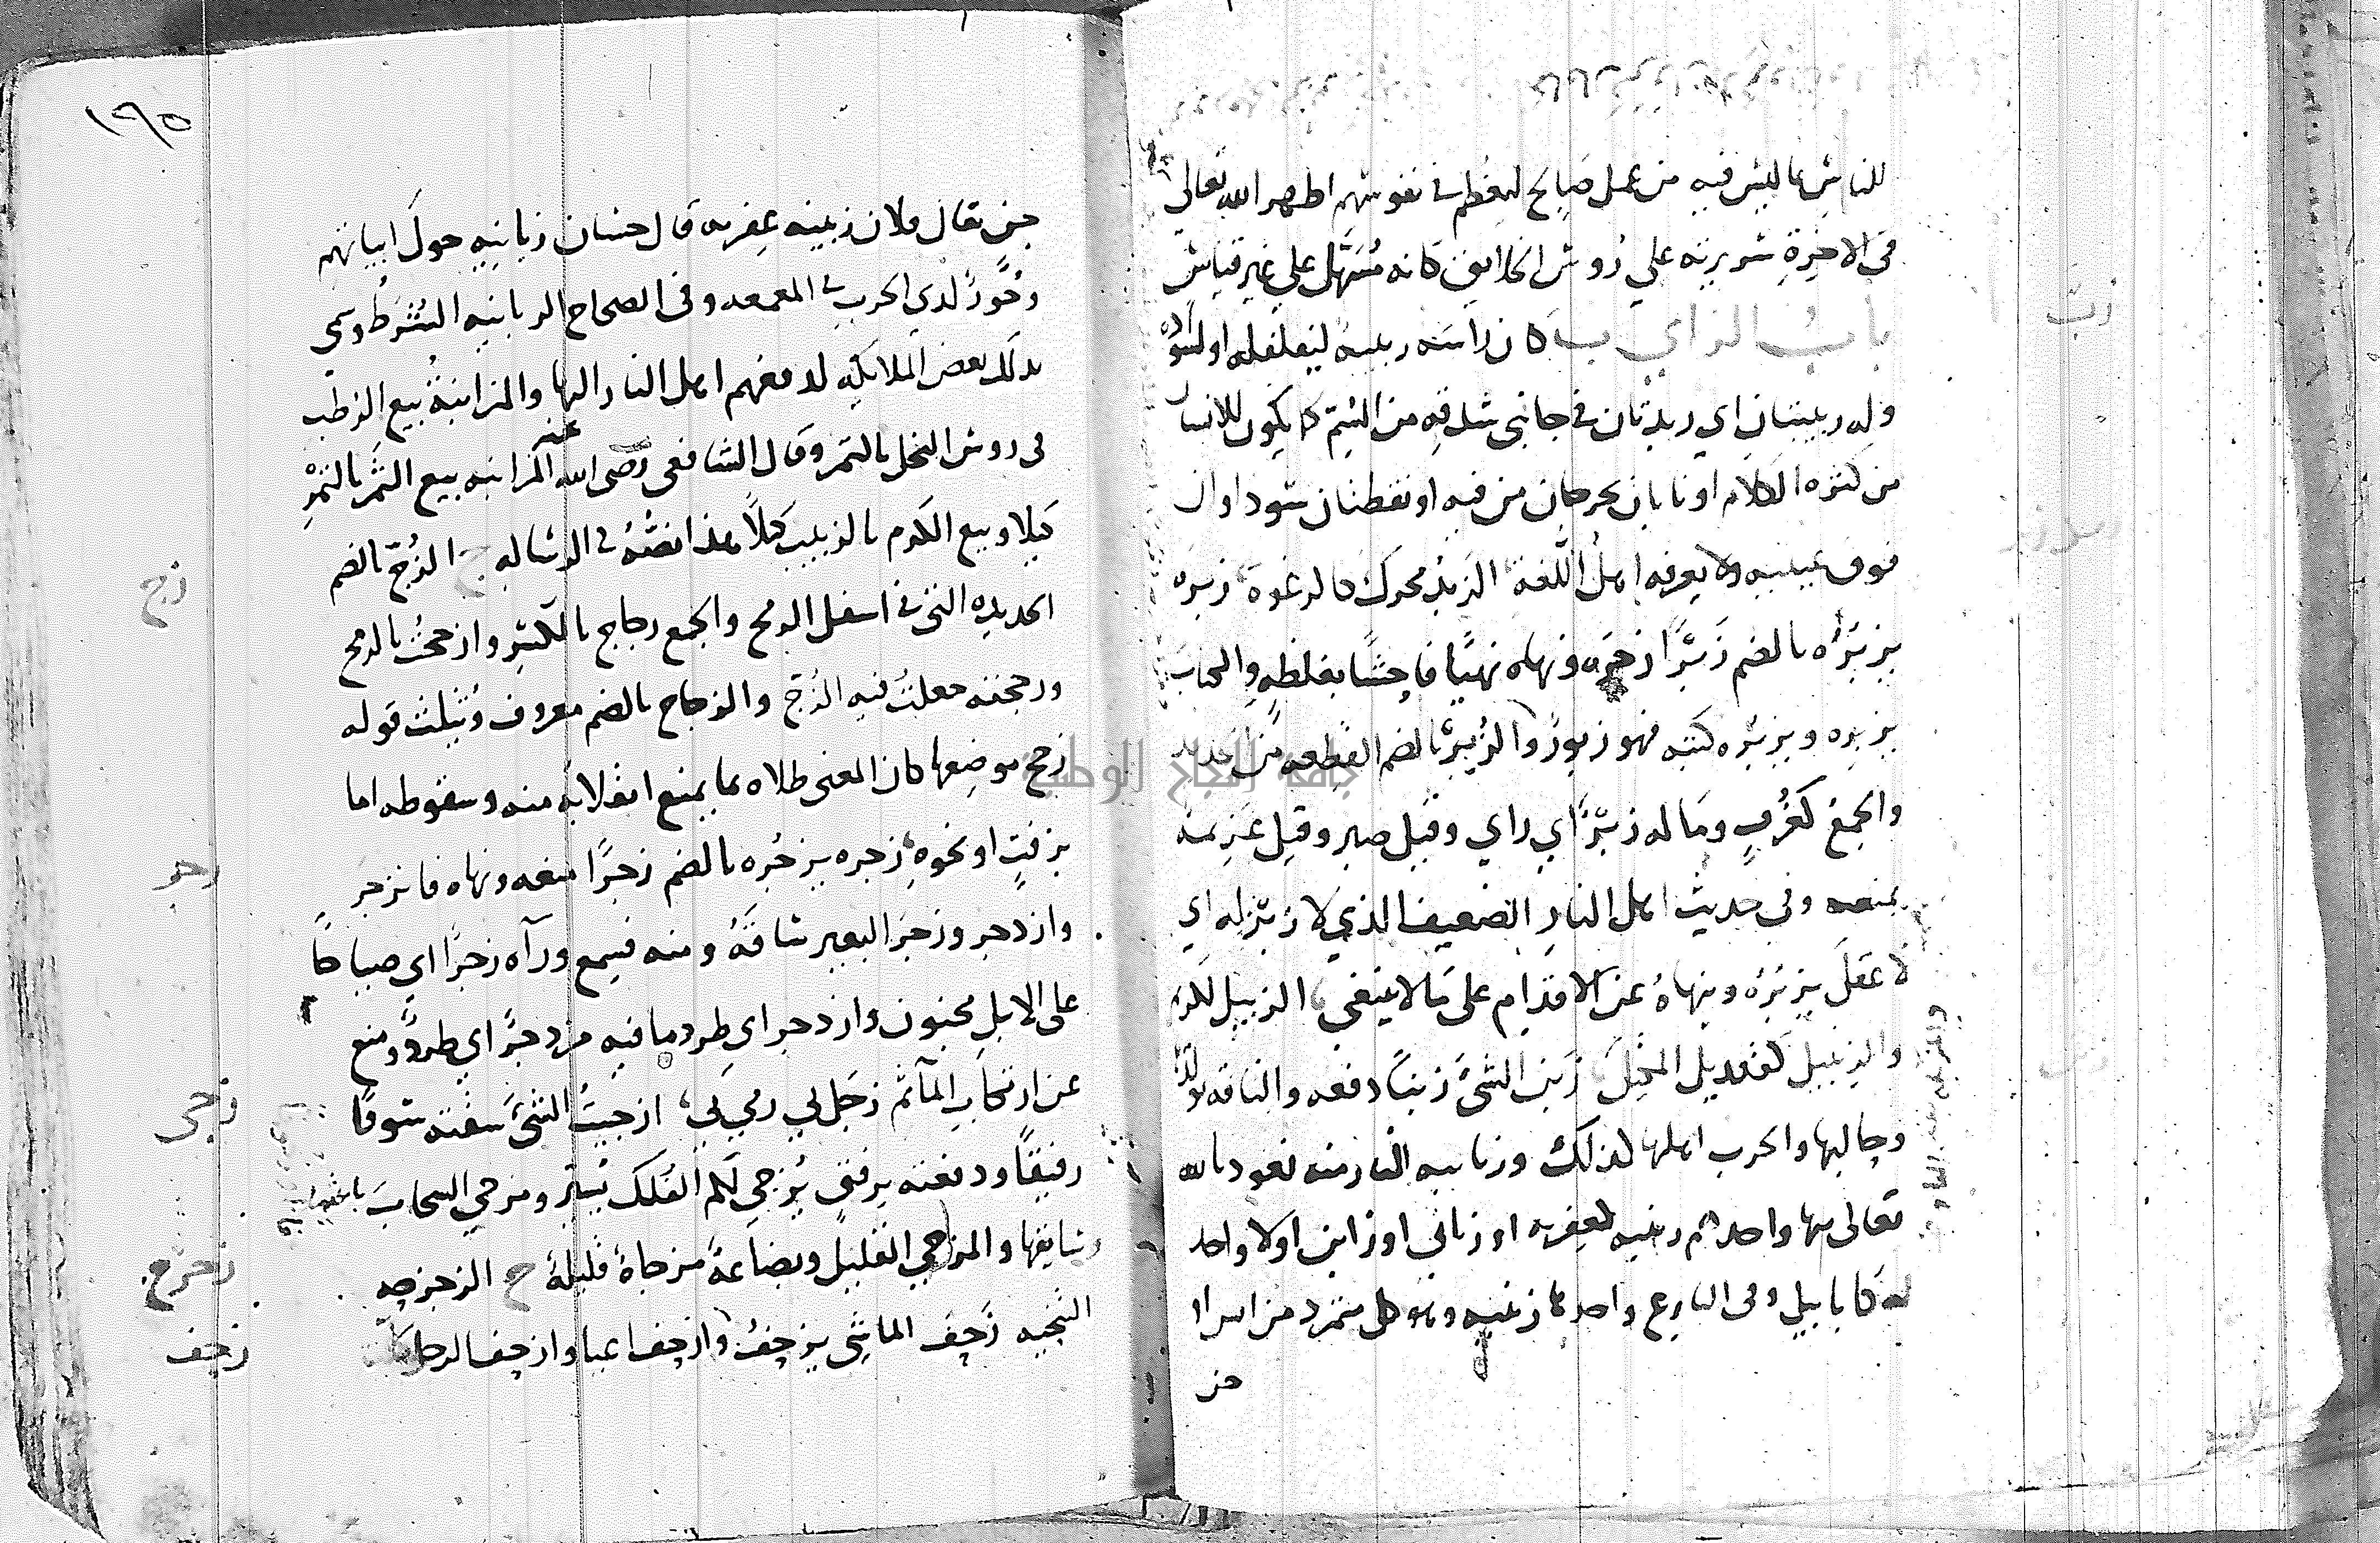 للناس ما ليس فيه من عمل صالح ليعظم في نفوسهم اظهر الله تعالى
في الاخرة سريرته علي رؤس الخلايق كانه مسهل علي غير قياس
باب الزاي ب كان راسه زبيبة لتفلفله او لسواده
وله زبيبتان اي زبدتان في جانبي شدقه من السم كما يكون للانسان
من كثرة الكلام او نابان يخرجان من فيه او نقطتان سوداوان
فوق عينيه ولا يعرفه اهل اللغة الزبد محرك كالرغوة زبره
يزبره بالضم زبرا زجره ونهاه نهيا فاحشا بغلظه والكتاب
يزبره ويزبره كتبه فهو زبور والزبرة بالضم القطعه من الحديد
والجمع كغرف وما له زبر اي راي وقيل صبر وقيل عزيمه
يمنعه وفي حديث اهل النار الضعيف الذي لا زبر له اي
لا عقل يزبره وينهاه عن الاقدام على ما لا ينبغي الزبيل
والزنبيل كقنديل المكيل زبن الشئ زبنا دفعه والناقه
وحالبها والحرب اهلها كذلك وزبانيه النار منه نعوذ بالله
تعالى منها واحدهم زبنيه كعفريه او زباني او زابن اولا واحد
له كابابيل وفي البارع واحدها زبنيه وهو كل متمرد من انس او
من
١٩٥
جن يقال فلان زبنيه عفريه قال حسان زبانيه حول ابياتهم
وخور لدي الحرب في المعمعه وفي الصحاح الزبانيه الشرط وسمي
بذلك بعض الملايكه لدفعهم اهل النار اليها والمزابنة بيع الرطب
في روس النخل بالتمر وقال الشافعي رضي الله عنه المزابنه بيع الثمر بالتمر
كيلا وبيع الكرم بالزبيب كيلا هذا نصه في الرساله ج الزج بالضم
الحديده التي في اسفل الرمح والجمع زجاج بالكسر وازججت بالرمح
وزججته جعلت فيه الزج والزجاج بالضم معروف ويثلث قوله
زجج موضعها كان المعنى طلاه بما يمنع انقلابه منه وسقوطه اما
بزفت او نحوه زجره يزجره بالضم زجرا منعه ونهاه فانزجر
وازدجر وزجر البعير ساقه ومنه فسمع ورآه زجرا اي صياحا
على الابل مجنون وازدجر اي طرد ما فيه مزدجر اي طرد ومنع
عن ارتكاب المآثم زجل لي رمي لي ازجيت الشئ سقته سوقا
رفيقا ودفعته برفق يزجي لكم الفلك يسير ومزجي السحاب
وسايقها والمزجي القليل وبضاعة مزجاة قليلة ح الزحزحه
التنحيه زحف الماشي يزحف وازحف اعيا وازحف الرجل
زب
زج
زجر
زجى
زحزح
زحف
جامعة النجاح الوطنية